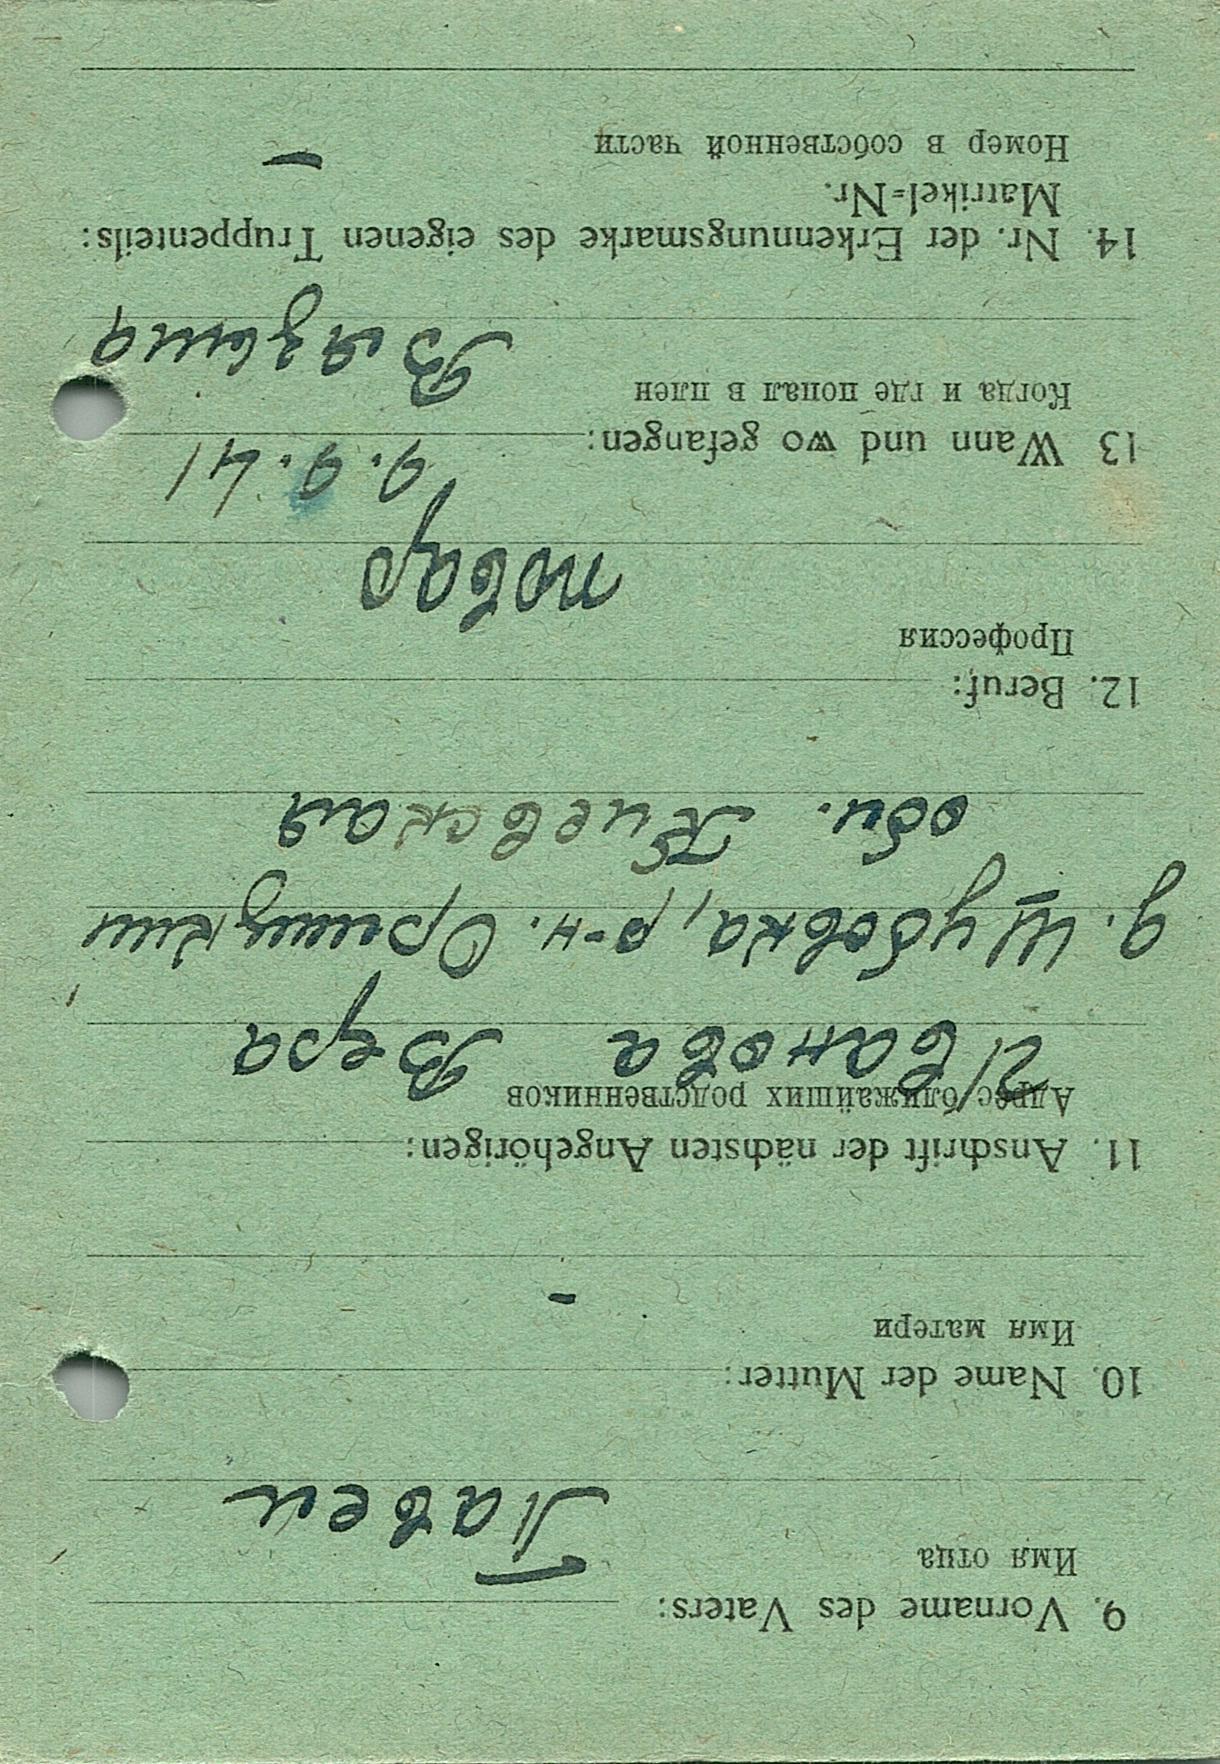 9. Vorname des Vaters:
Имя отца
Павел
10. Name der Mutter:
Имя матери
-
11. Anschrift der nächsten Angehörigen:
Адрес ближайших родственников
Иванова Вера
д. Шубовка, р-н.
обл. Киевская
12. Beruf:
Профессия
повар
13 Wann und wo gefangen:
9. 9. 41
Когда и где попал в плен
Вязьма
14. Nr. der Erkennungsmarke des eigenen Truppenteils:
Matrikel=Nr.
Номер в собственной части
—